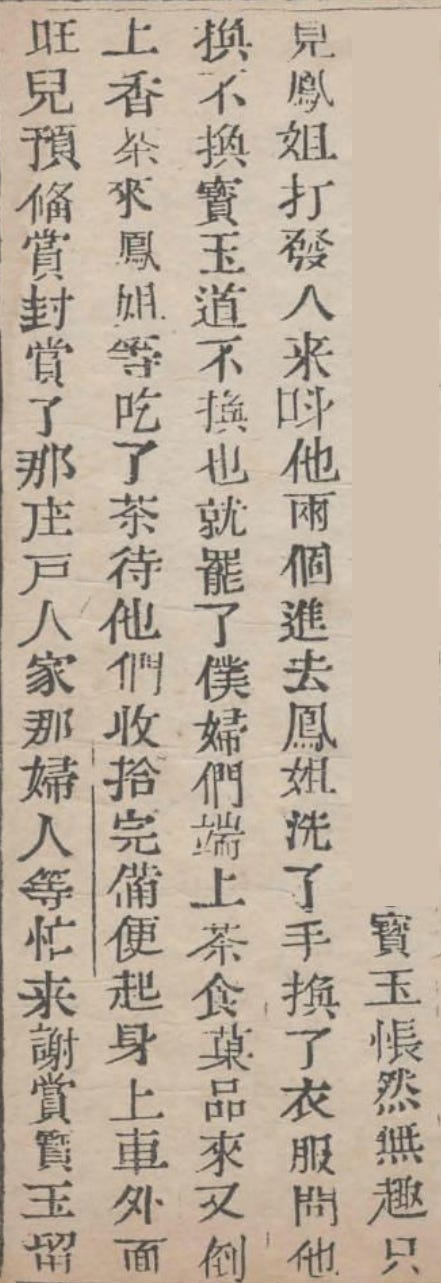 寳玉悵然無趣只
見鳳姐打發人来呌他兩個進去鳳姐洗了手換了衣服問他
換不換寳玉道不換也就罷了僕婦們端上茶食菓品來又倒
上香茶來鳳姐等吃了茶待他們收拾完備便起身上車外面
旺兒預俻賞封賞了那庄戸人家那婦人等忙来謝賞寳玉留